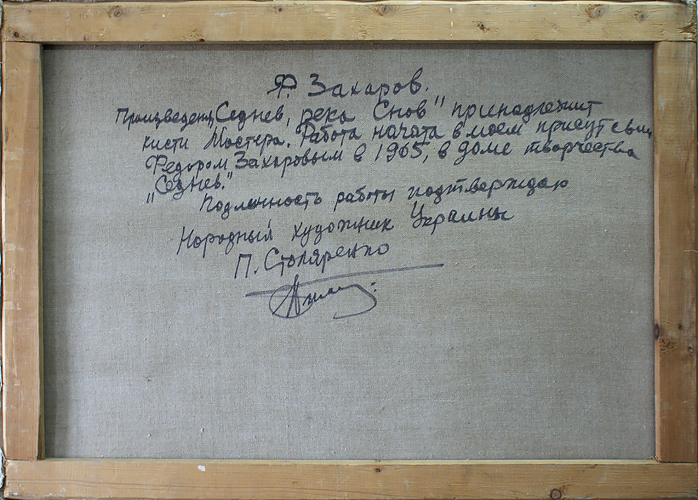 Ф. Захаров.
Произведение „Седнев, река Снов" принадлежит
кисти Мастера. Работа начата в моем присутствии
Федором Захаровым в 1965, в доме творчества
„Седнев."
Подлинность работы подтверждаю
Народный художник Украины
П. Столяренко